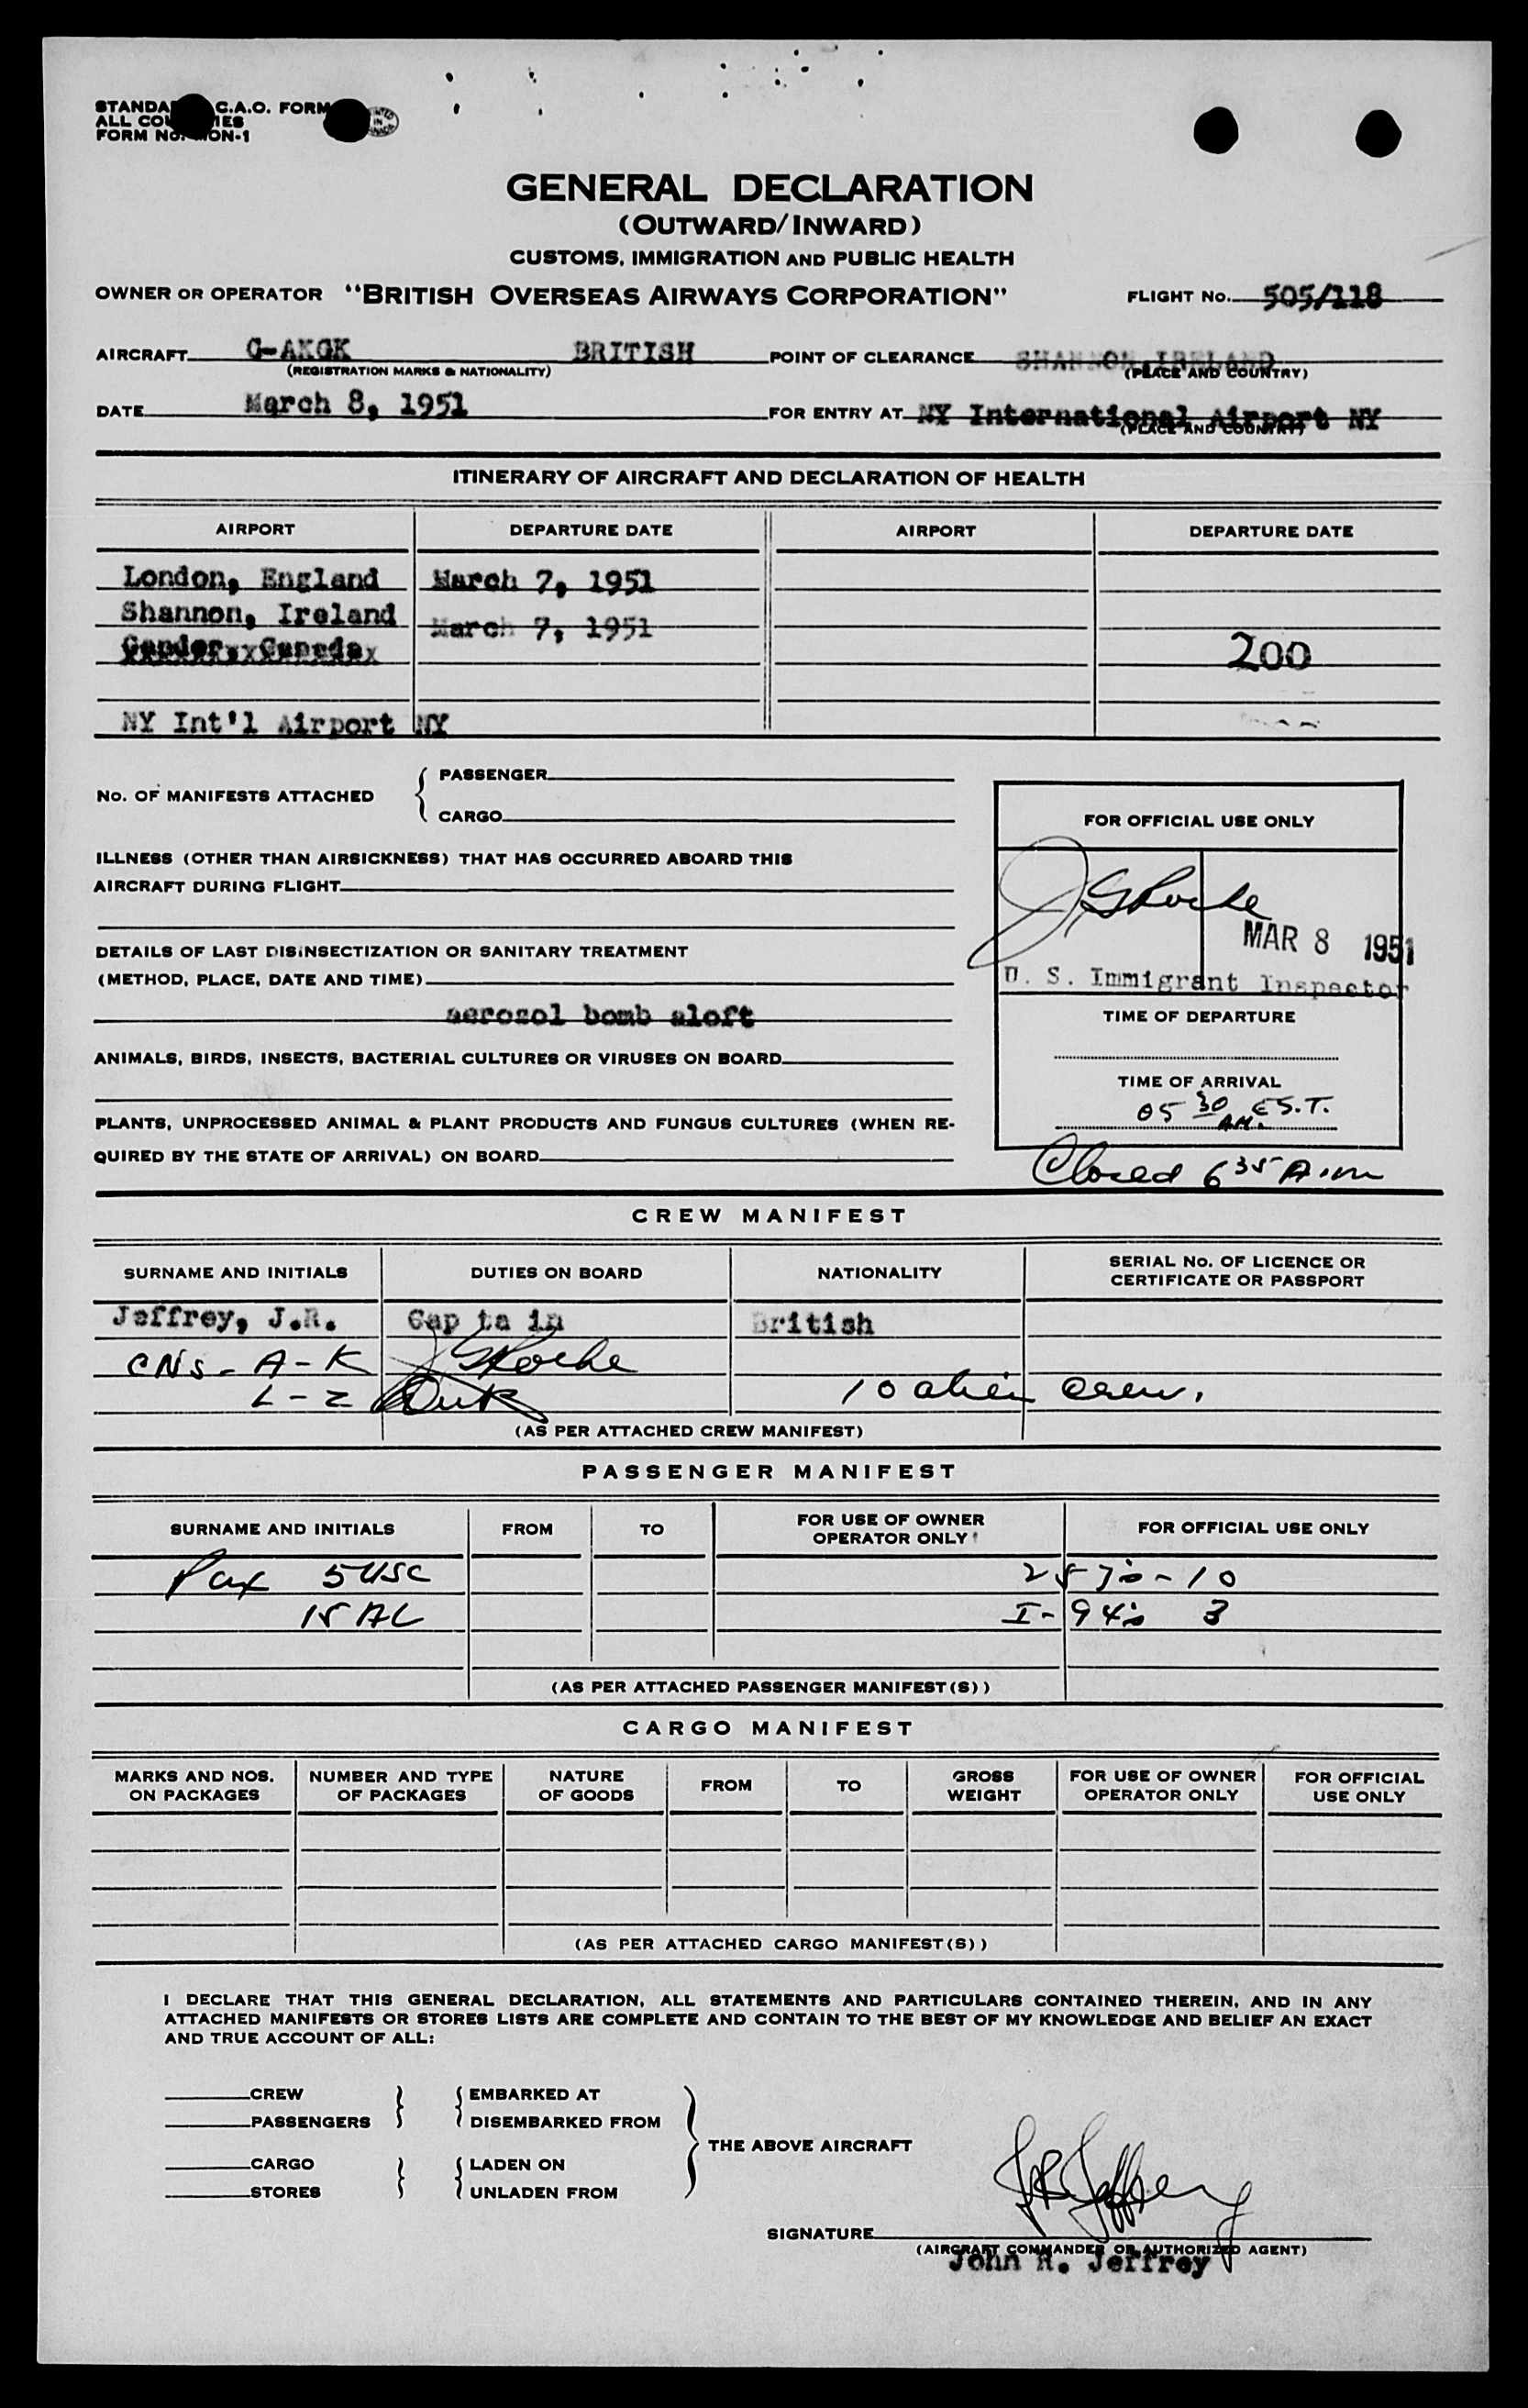 C.A.O. FORM
FORM
PRINTED IN CANADA
GENERAL DECLARATION
(OUTWARD/INWARD)
CUSTOMS, IMMIGRATION AND PUBLIC HEALTH
OWNER OR OPERATOR "BRITISH OVERSEAS AIRWAYS CORPORATION" FLIGHT No. 505/118
AIRCRAFT G-AKGK BRITISH POINT OF CLEARANCE SHANNON, IRELAND
(REGISTRATION MARKS & NATIONALITY) (PLACE AND COUNTRY)
DATE March 8, 1951 FOR ENTRY AT NY International Airport NY
(PLACE AND COUNTRY)
ITINERARY OF AIRCRAFT AND DECLARATION OF HEALTH
AIRPORT DEPARTURE DATE AIRPORT DEPARTURE DATE
London, England March 7, 1951
Shannon, Ireland March 7, 1951
Gander, Canada 200
NY Int'l Airport NY
No. OF MANIFESTS ATTACHED { PASSENGER
CARGO
FOR OFFICIAL USE ONLY
ILLNESS (OTHER THAN AIRSICKNESS) THAT HAS OCCURRED ABOARD THIS
AIRCRAFT DURING FLIGHT
J G Roche
MAR 8 1951
U. S. Immigrant Inspector
DETAILS OF LAST DISINSECTIZATION OR SANITARY TREATMENT
(METHOD, PLACE, DATE AND TIME)
aerosol bomb aloft
TIME OF DEPARTURE
ANIMALS, BIRDS, INSECTS, BACTERIAL CULTURES OR VIRUSES ON BOARD
TIME OF ARRIVAL
05 30 A.M. E.S.T.
PLANTS, UNPROCESSED ANIMAL & PLANT PRODUCTS AND FUNGUS CULTURES (WHEN RE-
QUIRED BY THE STATE OF ARRIVAL) ON BOARD
Closed 6 35 A.m
CREW MANIFEST
SURNAME AND INITIALS DUTIES ON BOARD NATIONALITY SERIAL No. OF LICENCE OR
CERTIFICATE OR PASSPORT
Jeffrey, J.R. Cap ta in British
CNS - A-K J G Roche
L-Z 10 alien crew.
(AS PER ATTACHED CREW MANIFEST)
PASSENGER MANIFEST
SURNAME AND INITIALS FROM TO FOR USE OF OWNER
OPERATOR ONLY FOR OFFICIAL USE ONLY
Pax 5 USC 257's - 10
15 AL I-94's 3
(AS PER ATTACHED PASSENGER MANIFEST(S))
CARGO MANIFEST
MARKS AND NOS. NUMBER AND TYPE NATURE FROM TO GROSS FOR USE OF OWNER FOR OFFICIAL
ON PACKAGES OF PACKAGES OF GOODS WEIGHT OPERATOR ONLY USE ONLY
(AS PER ATTACHED CARGO MANIFEST(S))
I DECLARE THAT THIS GENERAL DECLARATION, ALL STATEMENTS AND PARTICULARS CONTAINED THEREIN, AND IN ANY
ATTACHED MANIFESTS OR STORES LISTS ARE COMPLETE AND CONTAIN TO THE BEST OF MY KNOWLEDGE AND BELIEF AN EXACT
AND TRUE ACCOUNT OF ALL:
CREW } { EMBARKED AT
PASSENGERS DISEMBARKED FROM
} THE ABOVE AIRCRAFT
CARGO } { LADEN ON
STORES UNLADEN FROM
J R Jeffrey
SIGNATURE
(AIRCRAFT COMMANDER OR AUTHORIZED AGENT)
John R. Jeffrey